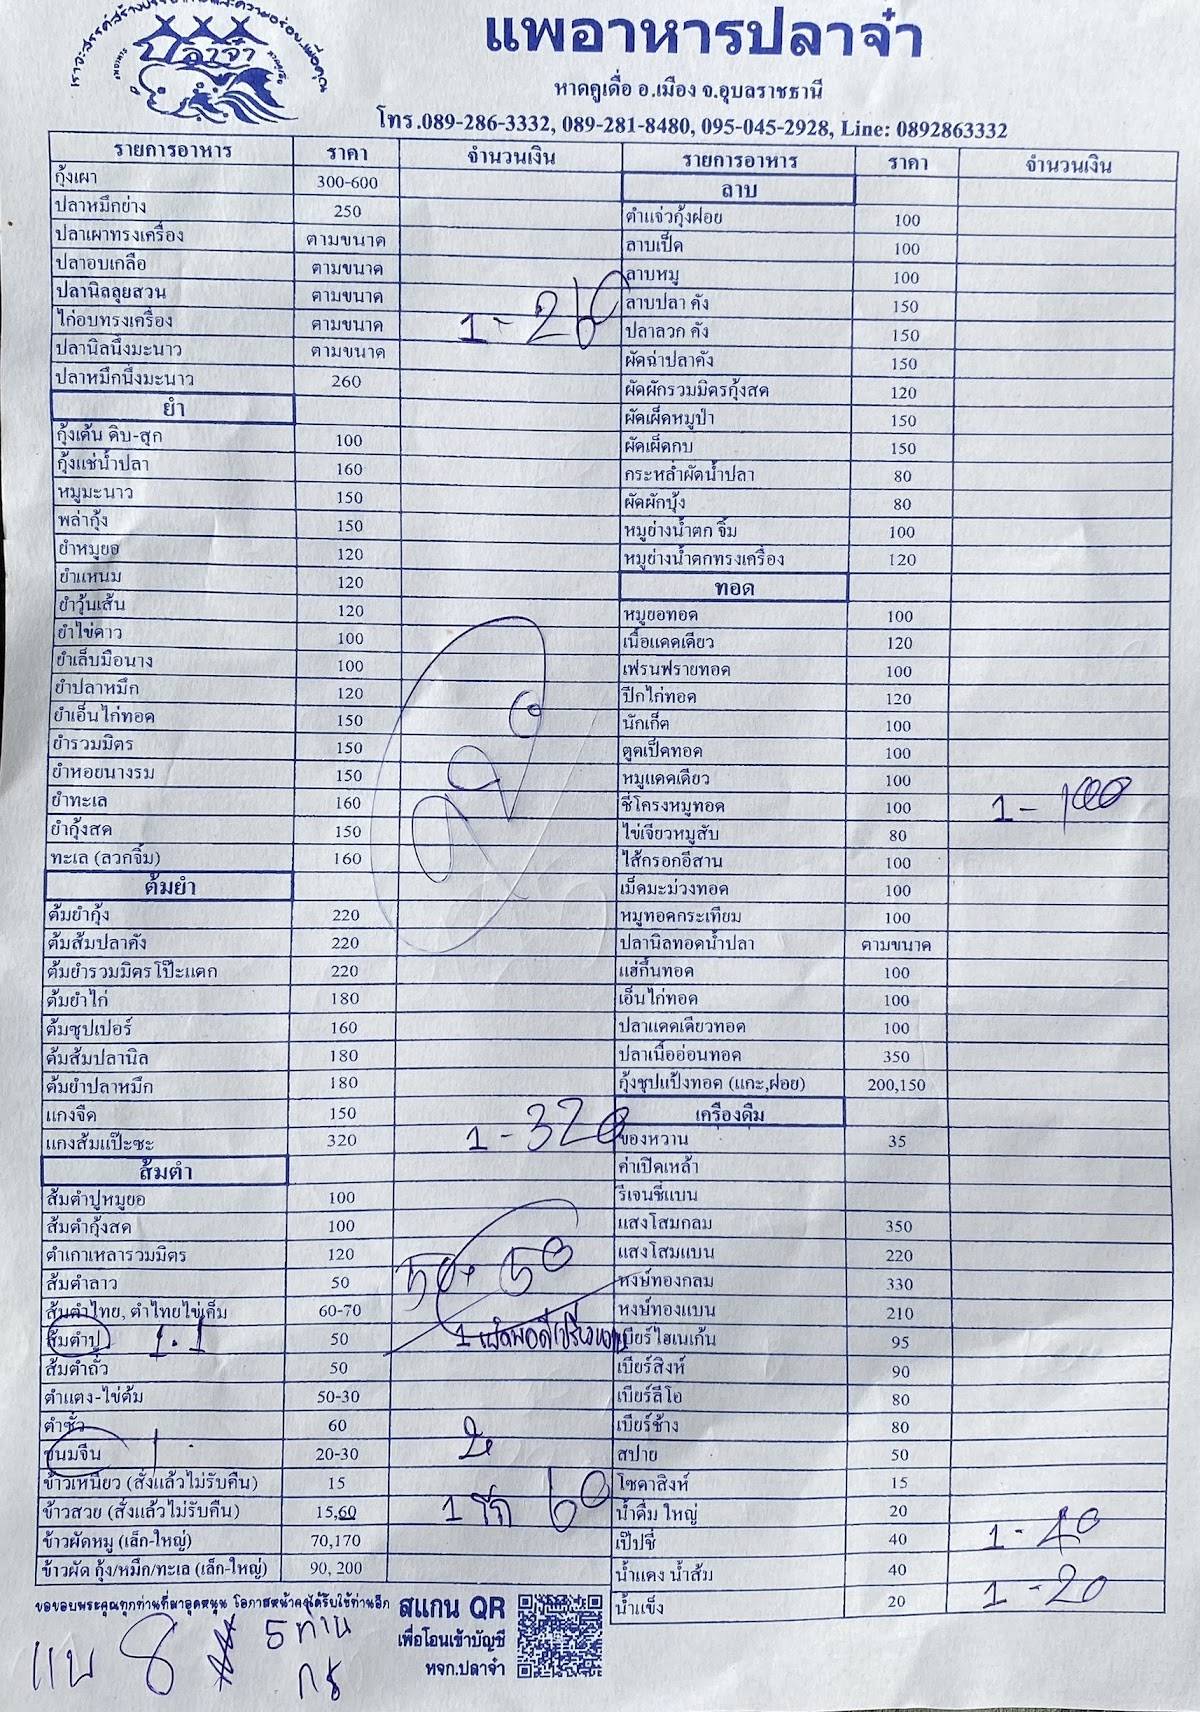 เราจะสรรค์สร้างบรรยากาศและความอร่อย..เพื่อคุณ
ปลาจ๋า
แพอาหารปลาจ๋า
หาดคูเดื่อ อ.เมือง จ.อุบลราชธานี
โทร.089-286-3332, 089-281-8480, 095-045-2928, Line: 0892863332
รายการอาหาร ราคา จำนวนเงิน
กุ้งเผา 300-600
ปลาหมึกย่าง 250
ปลาเผาทรงเครื่อง ตามขนาด
ปลาอบเกลือ ตามขนาด
ปลานิลลุยสวน ตามขนาด
ไก่อบทรงเครื่อง ตามขนาด 1-260
ปลานิลนึ่งมะนาว ตามขนาด
ปลาหมึกนึ่งมะนาว 260
ยำ
กุ้งเต้น ดิบ-สุก 100
กุ้งแช่น้ำปลา 160
หมูมะนาว 150
พล่ากุ้ง 150
ยำหมูยอ 120
ยำแหนม 120
ยำวุ้นเส้น 120
ยำไข่ดาว 100
ยำเล็บมือนาง 100
ยำปลาหมึก 120
ยำเอ็นไก่ทอด 150
ยำรวมมิตร 150
ยำหอยนางรม 150
ยำทะเล 160
ยำกุ้งสด 150
ทะเล (ลวกจิ้ม) 160
ต้มยำ
ต้มยำกุ้ง 220
ต้มส้มปลาคัง 220
ต้มยำรวมมิตร โป๊ะแตก 220
ต้มยำไก่ 180
ต้มซุปเปอร์ 160
ต้มส้มปลานิล 180
ต้มยำปลาหมึก 180
แกงจืด 150
แกงส้มแป๊ะซะ 320 1-320
ส้มตำ
ส้มตำปูหมูยอ 100
ส้มตำกุ้งสด 100
ตำเกาเหลารวมมิตร 120
ส้มตำลาว 50 50+50
ส้มตำไทย, ตำไทยไข่เค็ม 60-70
ส้มตำปู 1.1 50
ส้มตำถั่ว 50
ตำแตง-ไข่ต้ม 50-30
ตำซั่ว 60
ขนมจีน 1 20-30
ข้าวเหนียว (สั่งแล้วไม่รับคืน) 15
ข้าวสวย (สั่งแล้วไม่รับคืน) 15,60 1 60
ข้าวผัดหมู (เล็ก-ใหญ่) 70,170
ข้าวผัด กุ้ง/หมึก/ทะเล (เล็ก-ใหญ่) 90, 200
รายการอาหาร ราคา จำนวนเงิน
ลาบ
ตำแจ่วกุ้งฝอย 100
ลาบเป็ด 100
ลาบหมู 100
ลาบปลา คัง 150
ปลาลวก คัง 150
ผัดฉ่าปลาคัง 150
ผัดผักรวมมิตรกุ้งสด 120
ผัดเผ็ดหมูป่า 150
ผัดเผ็ดกบ 150
กระหล่ำผัดน้ำปลา 80
ผัดผักบุ้ง 80
หมูย่างน้ำตก จิ้ม 100
หมูย่างน้ำตกทรงเครื่อง 120
ทอด
หมูยอทอด 100
เนื้อแดดเดียว 120
เฟรนฟรายทอด 100
ปีกไก่ทอด 120
นักเก็ต 100
ตูดเป็ดทอด 100
หมูแดดเดียว 100
ซี่โครงหมูทอด 100 1-100
ไข่เจียวหมูสับ 80
ไส้กรอกอีสาน 100
เม็ดมะม่วงทอด 100
หมูทอดกระเทียม 100
ปลานิลทอดน้ำปลา ตามขนาด
แฮ่กึ้นทอด 100
เอ็นไก่ทอด 100
ปลาแดดเดียวทอด 100
ปลาเนื้ออ่อนทอด 350
กุ้งชุปแป้งทอด (แกะ,ฝอย) 200,150
เครื่องดื่ม
ของหวาน 35
ค่าเปิดเหล้า
รีเจนซี่แบน
แสงโสมกลม 350
แสงโสมแบน 220
หงษ์ทองกลม 330
หงษ์ทองแบน 210
เบียร์ไฮเนเก้น 95
เบียร์สิงห์ 90
เบียร์ลีโอ 80
เบียร์ช้าง 80
สปาย 50
โซดาสิงห์ 15
น้ำดื่ม ใหญ่ 20
เป๊ปซี่ 40 1-40
น้ำแดง น้ำส้ม 40
น้ำแข็ง 20 1-20
ขอขอบพระคุณทุกท่านที่มาอุดหนุน โอกาสหน้าคงได้รับใช้ท่านอีก
สแกน QR
เพื่อโอนเข้าบัญชี
หจก.ปลาจ๋า
แพ 8 5 ท่าน